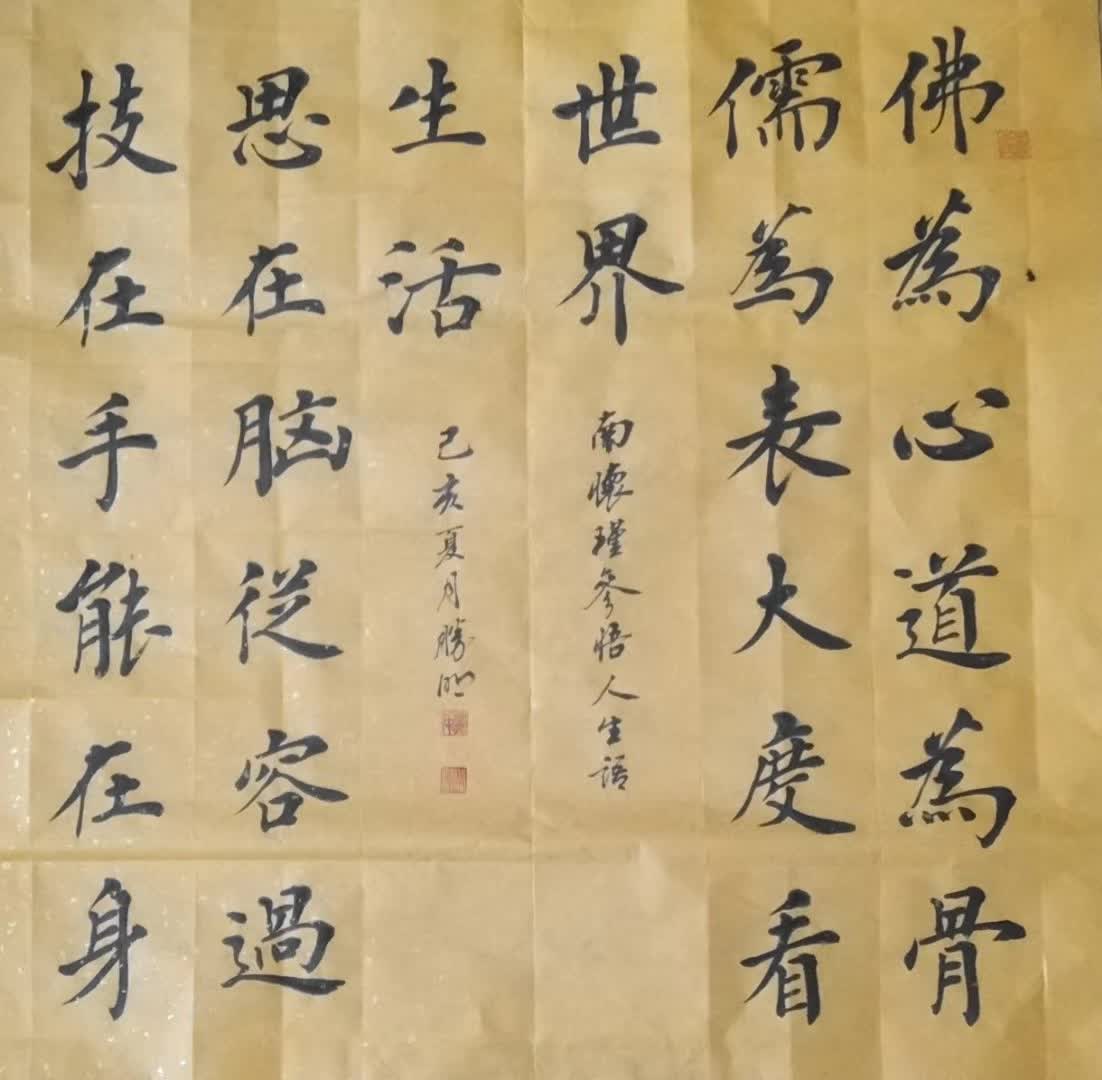 佛為心道為骨
儒為表大度看
世界
技在手能在身
思在脑從容過
生活
南懷瑾參悟人生語
己亥夏月勝明